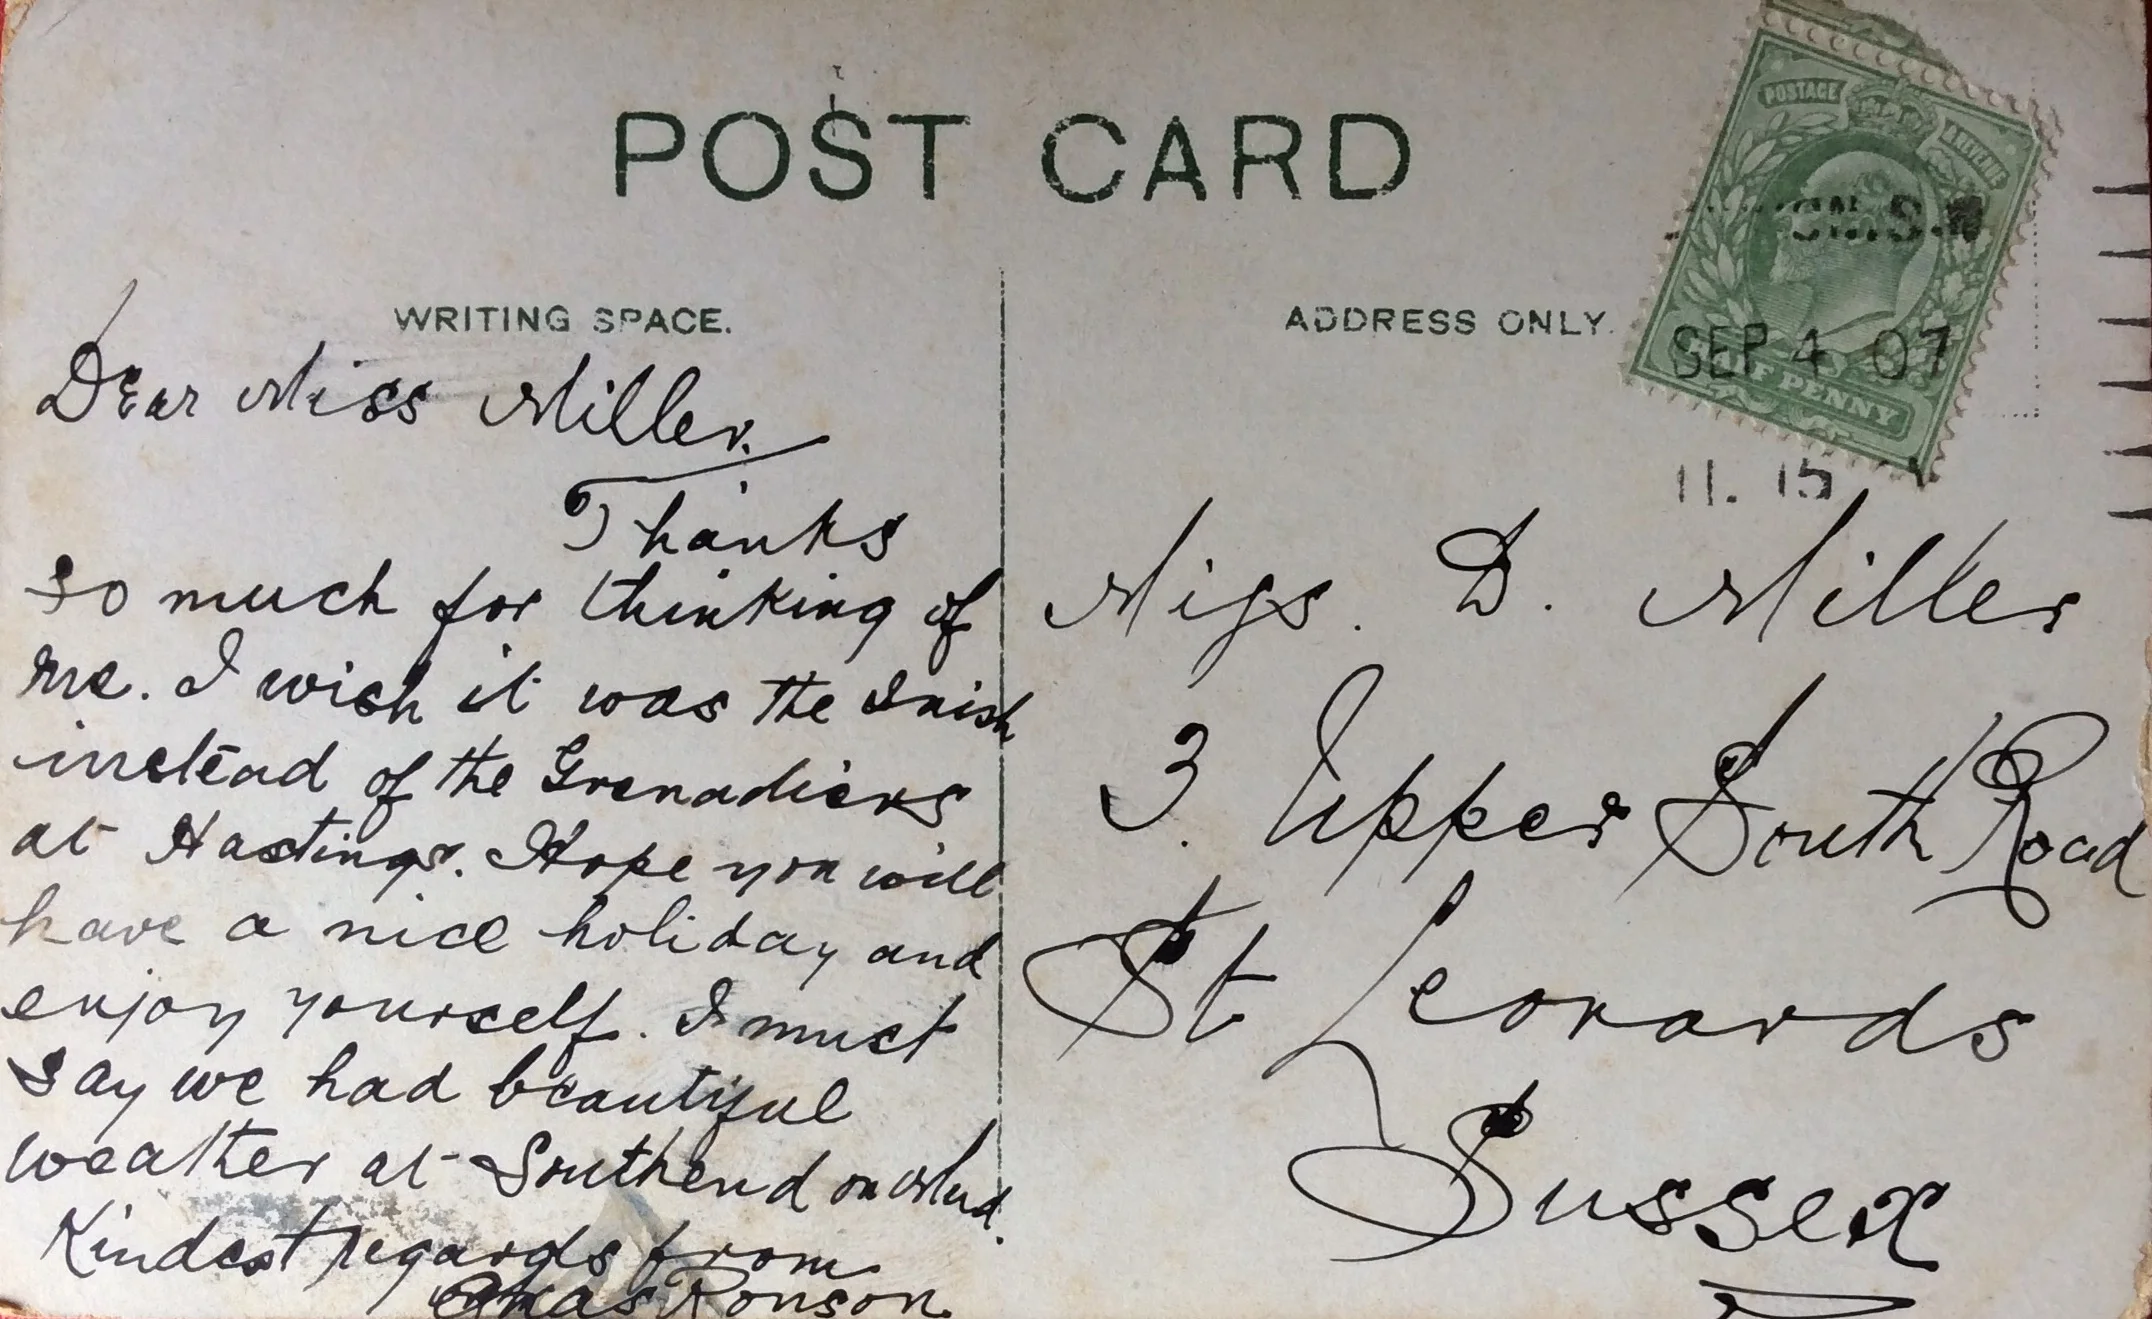 POST CARD
WRITING SPACE.
Dear Miss Miller.
Thanks
so much for thinking of
me. I wish it was the
instead of the Grenadiers
at Hastings. Hope you will
have a nice holiday and
enjoy yourself. I must
say we had beautiful
weather at Southend on Mud.
Kindest regards from
Ronson
ADDRESS ONLY.
POSTAGE REVENUE
SEP 4 07
HALF PENNY
11. 15
Miss. D. Miller
3. Upper South Road
St Leonards
Sussex